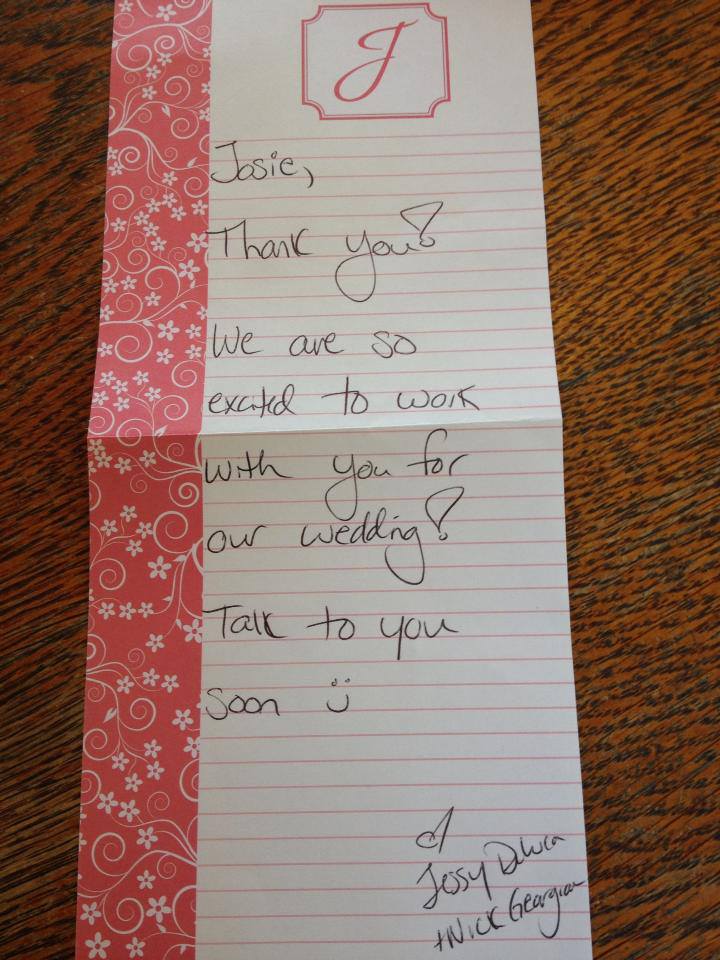 J
Josie,
Thank you!
We are so
excited to work
with you for
our wedding!
Talk to you
soon :)
Jessy DeLuca
+ Nick Georgian